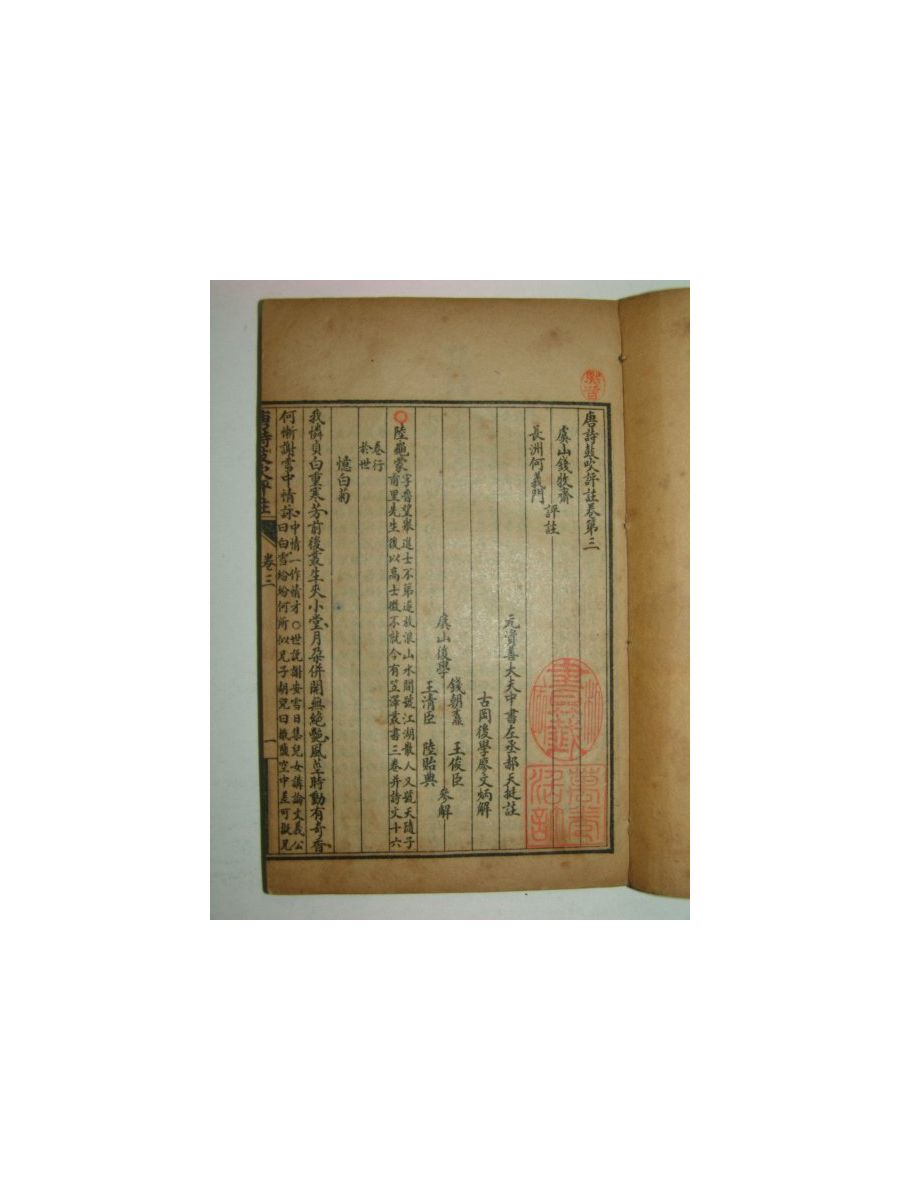 唐詩鼓吹評註卷第三
虞山錢牧齋
評註
長洲何義門
元資善大夫中書左丞郝天挺註
古岡後學廖文炳解
錢朝鼒 王俊臣
虞山後學
參解
王清臣 陸貽典
陸龜蒙
字魯望舉進士不第遂放浪山水間號江湖散人又號天隨子
甫里先生後以高士徵不就今有笠澤叢書三卷并詩文十六
卷行
於世
憶白菊
我憐貞白重寒芳前後叢生夾小堂月朶併開無絕艶風莖時動有奇香
何慚謝雪中情詠
中情一作情才○世說謝安雪日集兒女講論文義公
曰白雪紛紛何所似兄子朗兒曰撒鹽空中差可擬兄
唐詩鼓吹評註
卷三
一